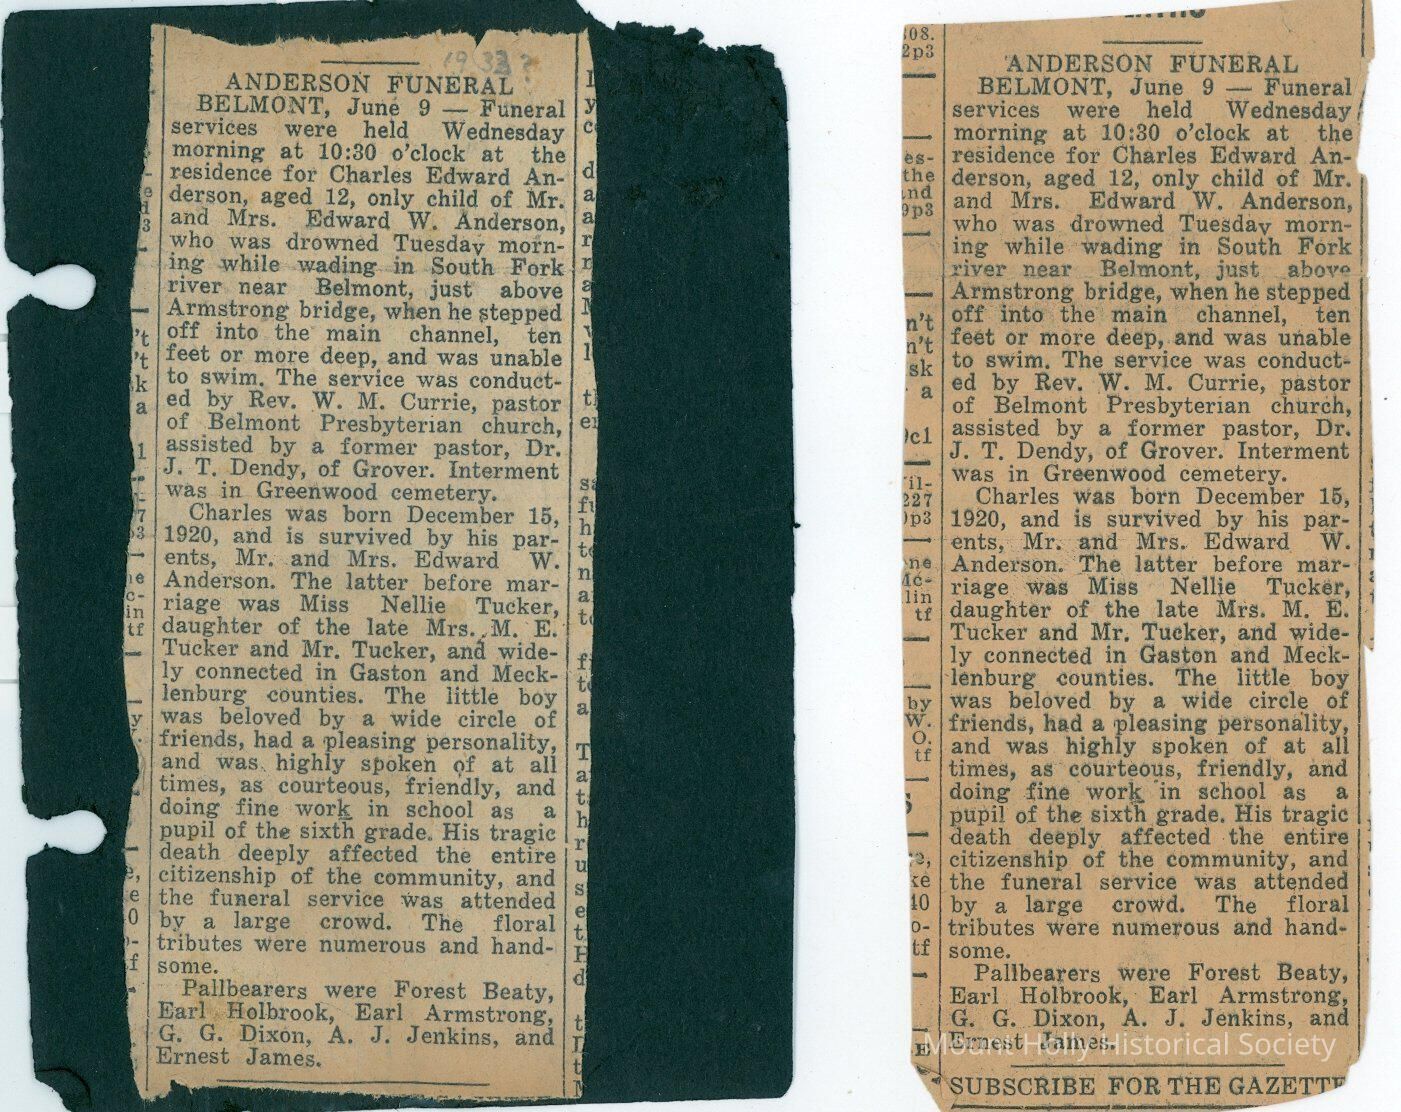 1933?
ANDERSON FUNERAL
BELMONT, June 9 — Funeral
services were held Wednesday
morning at 10:30 o'clock at the
residence for Charles Edward An-
derson, aged 12, only child of Mr.
and Mrs. Edward W. Anderson,
who was drowned Tuesday morn-
ing while wading in South Fork
river near Belmont, just above
Armstrong bridge, when he stepped
off into the main channel, ten
feet or more deep, and was unable
to swim. The service was conduct-
ed by Rev. W. M. Currie, pastor
of Belmont Presbyterian church,
assisted by a former pastor, Dr.
J. T. Dendy, of Grover. Interment
was in Greenwood cemetery.
Charles was born December 15,
1920, and is survived by his par-
ents, Mr. and Mrs. Edward W.
Anderson. The latter before mar-
riage was Miss Nellie Tucker,
daughter of the late Mrs. M. E.
Tucker and Mr. Tucker, and wide-
ly connected in Gaston and Meck-
lenburg counties. The little boy
was beloved by a wide circle of
friends, had a pleasing personality,
and was highly spoken of at all
times, as courteous, friendly, and
doing fine work in school as a
pupil of the sixth grade. His tragic
death deeply affected the entire
citizenship of the community, and
the funeral service was attended
by a large crowd. The floral
tributes were numerous and hand-
some.
Pallbearers were Forest Beaty,
Earl Holbrook, Earl Armstrong,
G. G. Dixon, A. J. Jenkins, and
Ernest James.
ANDERSON FUNERAL
BELMONT, June 9 — Funeral
services were held Wednesday
morning at 10:30 o'clock at the
residence for Charles Edward An-
derson, aged 12, only child of Mr.
and Mrs. Edward W. Anderson,
who was drowned Tuesday morn-
ing while wading in South Fork
river near Belmont, just above
Armstrong bridge, when he stepped
off into the main channel, ten
feet or more deep, and was unable
to swim. The service was conduct-
ed by Rev. W. M. Currie, pastor
of Belmont Presbyterian church,
assisted by a former pastor, Dr.
J. T. Dendy, of Grover. Interment
was in Greenwood cemetery.
Charles was born December 15,
1920, and is survived by his par-
ents, Mr. and Mrs. Edward W.
Anderson. The latter before mar-
riage was Miss Nellie Tucker,
daughter of the late Mrs. M. E.
Tucker and Mr. Tucker, and wide-
ly connected in Gaston and Meck-
lenburg counties. The little boy
was beloved by a wide circle of
friends, had a pleasing personality,
and was highly spoken of at all
times, as courteous, friendly, and
doing fine work in school as a
pupil of the sixth grade. His tragic
death deeply affected the entire
citizenship of the community, and
the funeral service was attended
by a large crowd. The floral
tributes were numerous and hand-
some.
Pallbearers were Forest Beaty,
Earl Holbrook, Earl Armstrong,
G. G. Dixon, A. J. Jenkins, and
Ernest James.
Mount Holly Historical Society
SUBSCRIBE FOR THE GAZETTE